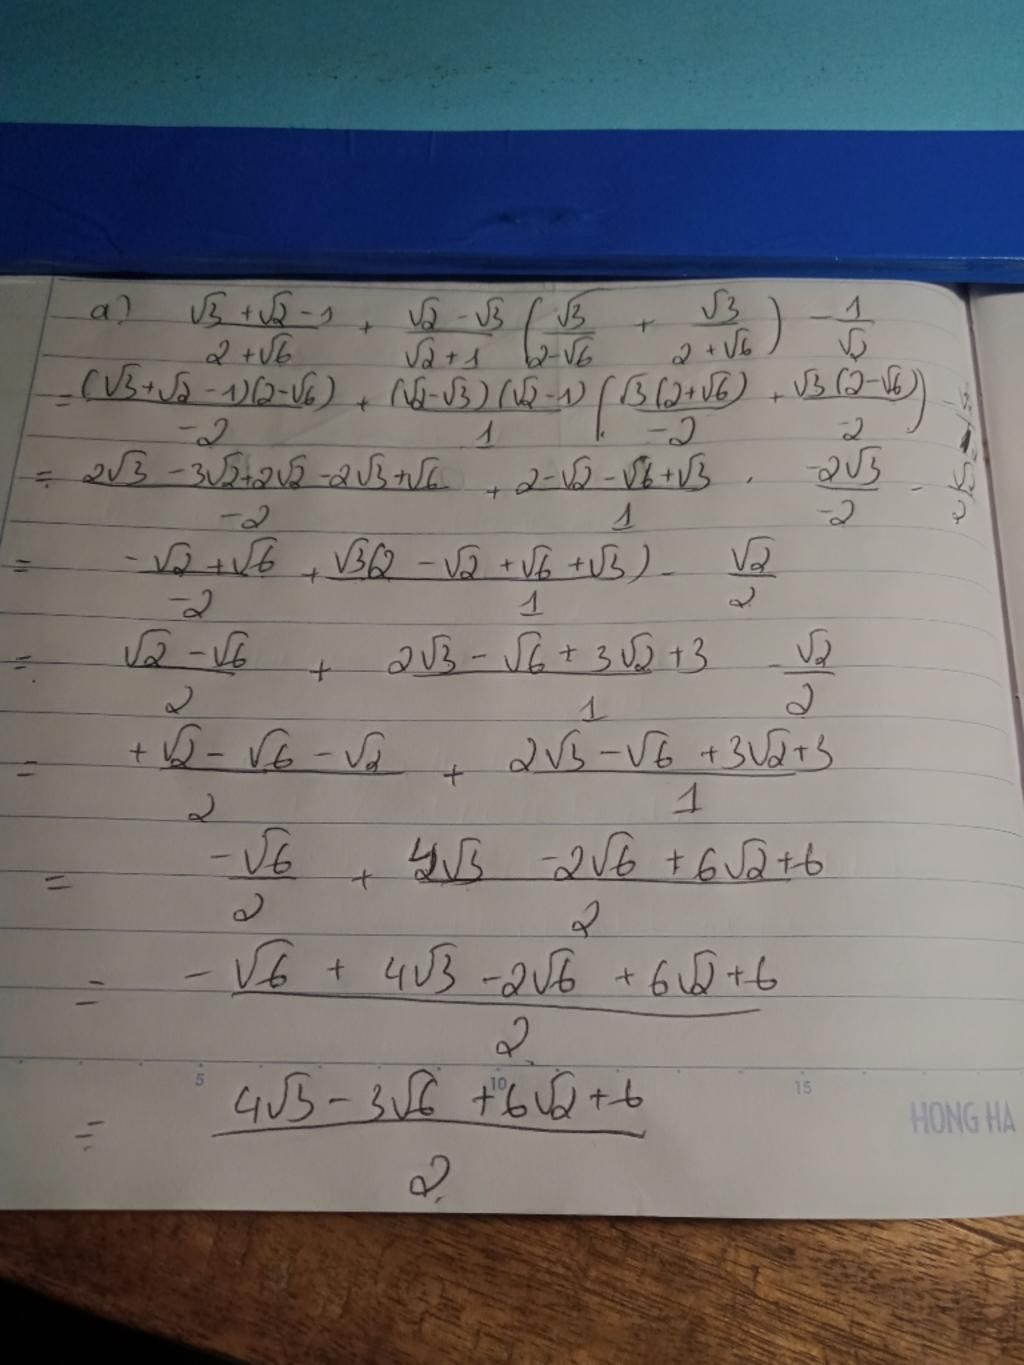 a) (√3 + √2 - 1)/(2 + √6) + (√2 - √3)/(√2 + 1) (√3/(2-√6) + √3/(2 + √6)) - 1/√2
= (√3 + √2 - 1)(2-√6)/-2 + (√2-√3)(√2-1)/1 (√3(2+√6)/-2 + √3(2-√6)/-2) -
= (2√3 - 3√2 + 2√2 - 2√3 + √6)/-2 + (2-√2 - √6 + √3)/1 . -2√3/-2 - √2/2
= (-√2 + √6)/-2 + √3(2 - √2 + √6 + √3)/1 - √2/2
= (√2 - √6)/2 + (2√3 - √6 + 3√2 + 3)/1 - √2/2
= (+√2 - √6 - √2)/2 + (2√3 - √6 + 3√2 + 3)/1
= -√6/2 + (4√3 - 2√6 + 6√2 + 6)/2
= (-√6 + 4√3 - 2√6 + 6√2 + 6)/2
5 10 15
= (4√3 - 3√6 + 6√2 + 6)/2
HONG HA